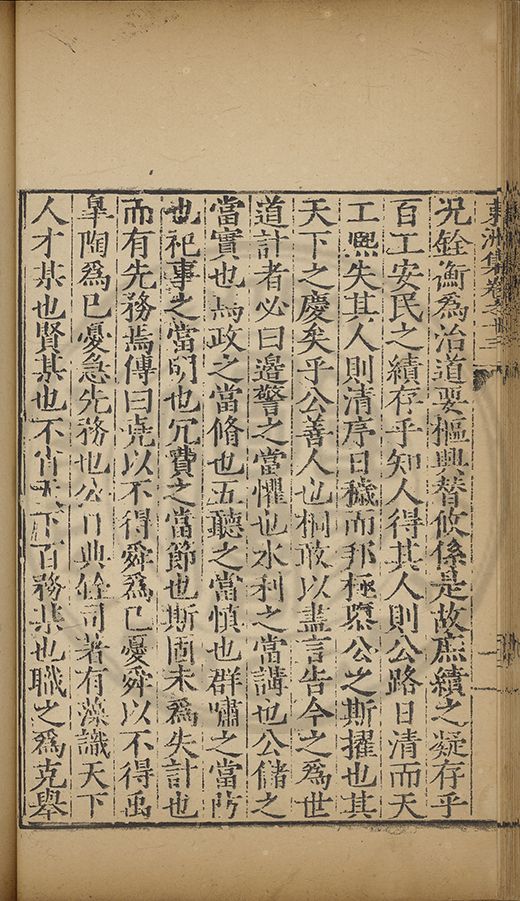 洲集卷之十三
况銓衡爲治道要樞興替攸係是故庶績之凝存乎
百工安民之績存乎知人得其人則公路日清而天
工熙失其人則清序日穢而邦極隳公之斯擢也其
天下之慶矣乎公善人也桐敢以盡言告今之爲世
道計者必曰邊警之當懼也水利之當講也公儲之
當實也馬政之當脩也五聽之當慎也群嘯之當防
也祀事之當明也冗費之當節也斯固未爲失計也
而有先務焉傳曰堯以不得舜爲已憂舜以不得禹
臯陶爲已憂急先務也公日典銓司著有藻識天下
人才某也賢某也不肖天下百務某也職之爲克舉